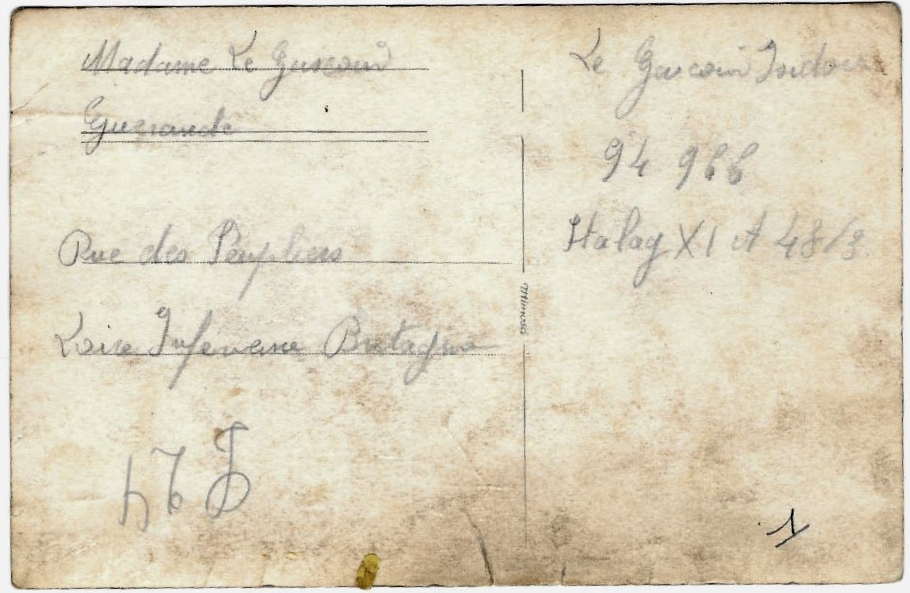 Madame Le Gascoin
Guerande
Rue des Peupliers
Loire Inferieure Bretagne
Le Gascoin Isidore
94 966
Stalag XI A 48/3
Mimosa
1